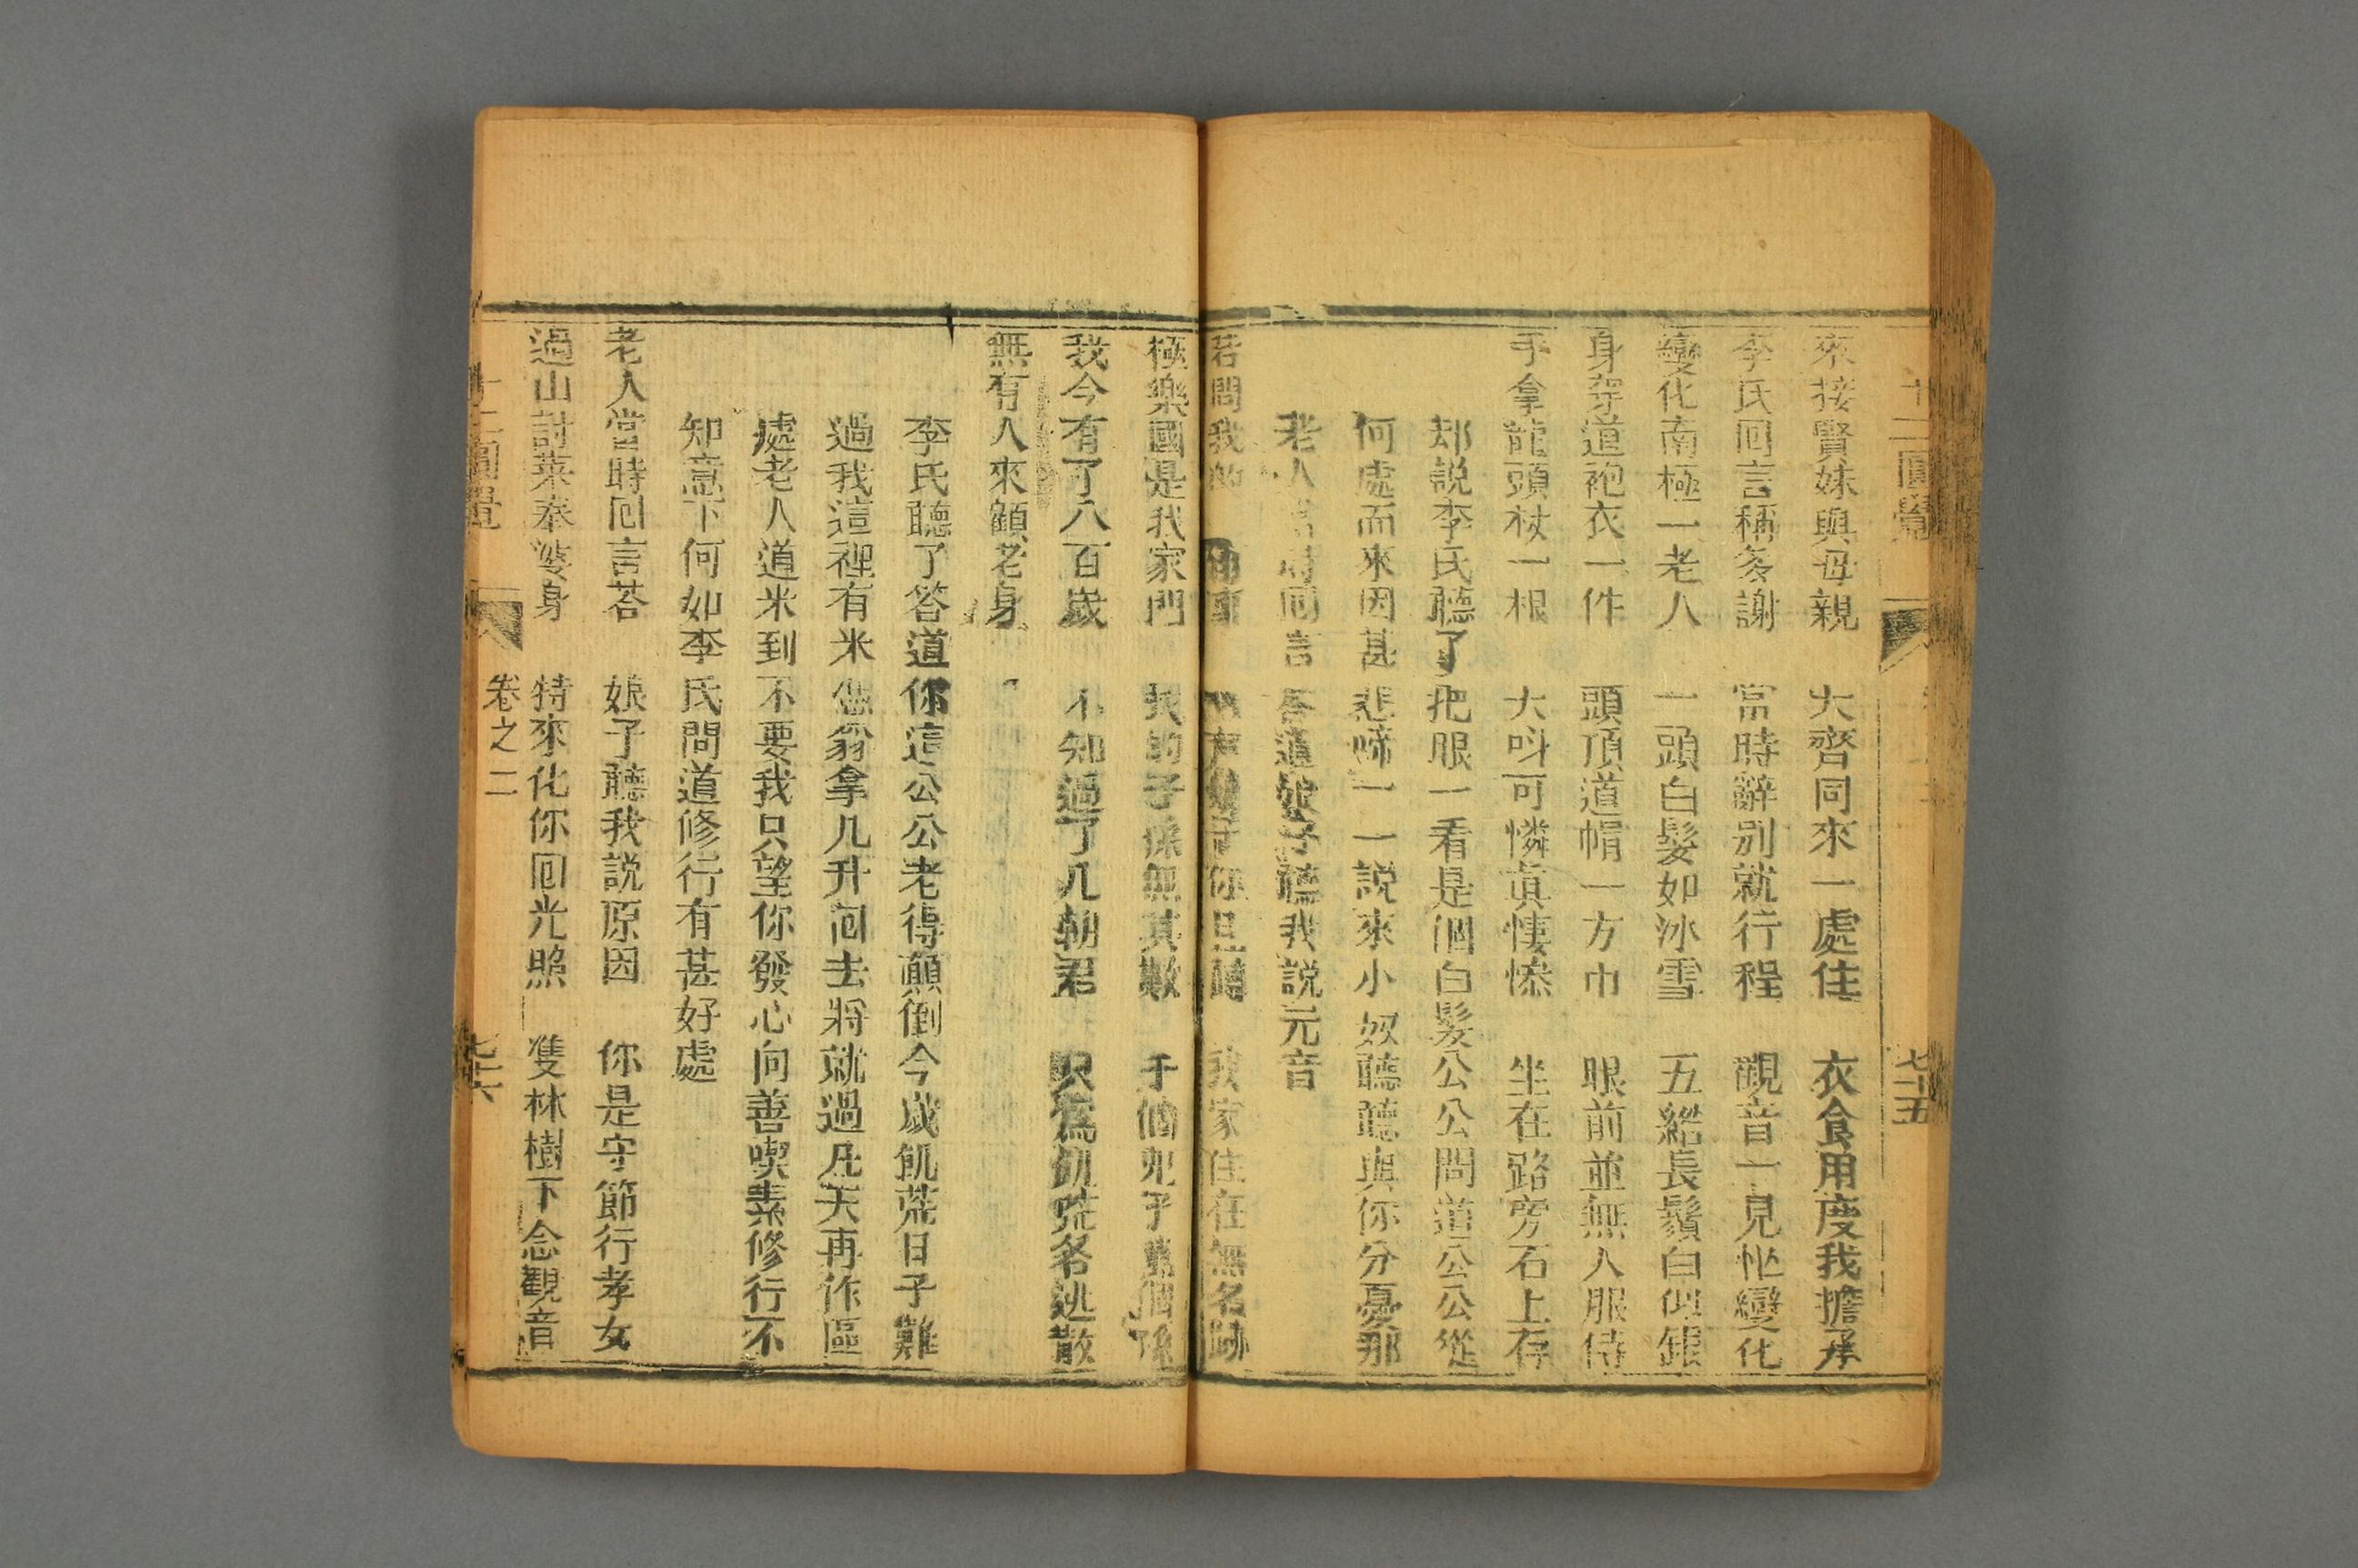 十二圓覺
七十五
來接賢妹與母親 大齊同來一處住 衣食用度我擔承
李氏囘言稱多謝 當時辭别就行程 觀音一見忙變化
變化南極一老人 一頭白髮如冰雪 五綹長鬚白似銀
身穿道袍衣一件 頭頂道帽一方巾 眼前並無人服侍
手拿龍頭杖一根 大呌可憐真悽慘 坐在路旁石上存
却説李氏聽了把眼一看是個白髮公公問道公公從
何處而來因甚悲啼一一説來小奴聽聽與你分憂那
老人當時囘言答道娘子聽我説元音
若問我的 你且聽 我家住在無名跡
極樂國是我家門 我的子孫無其數 千個兒子萬個孫
我今有了八百歲 不知過了几朝君 只為飢荒各逃散
無有人來顧老身
李氏聽了答道你這公公老得顛倒今歲飢荒日子難
過我這裡有米 拿几升囘去將就過几天再作區
處老人道米到不要我只望你發心向善喫素修行不
知意下何如李氏問道修行有甚好處
老人當時囘言荅 娘子聽我説原因 你是守節行孝女
過山討菜奉婆身 特來化你囘光照 雙林樹下念觀音
十二圓覺
卷之二
七十六